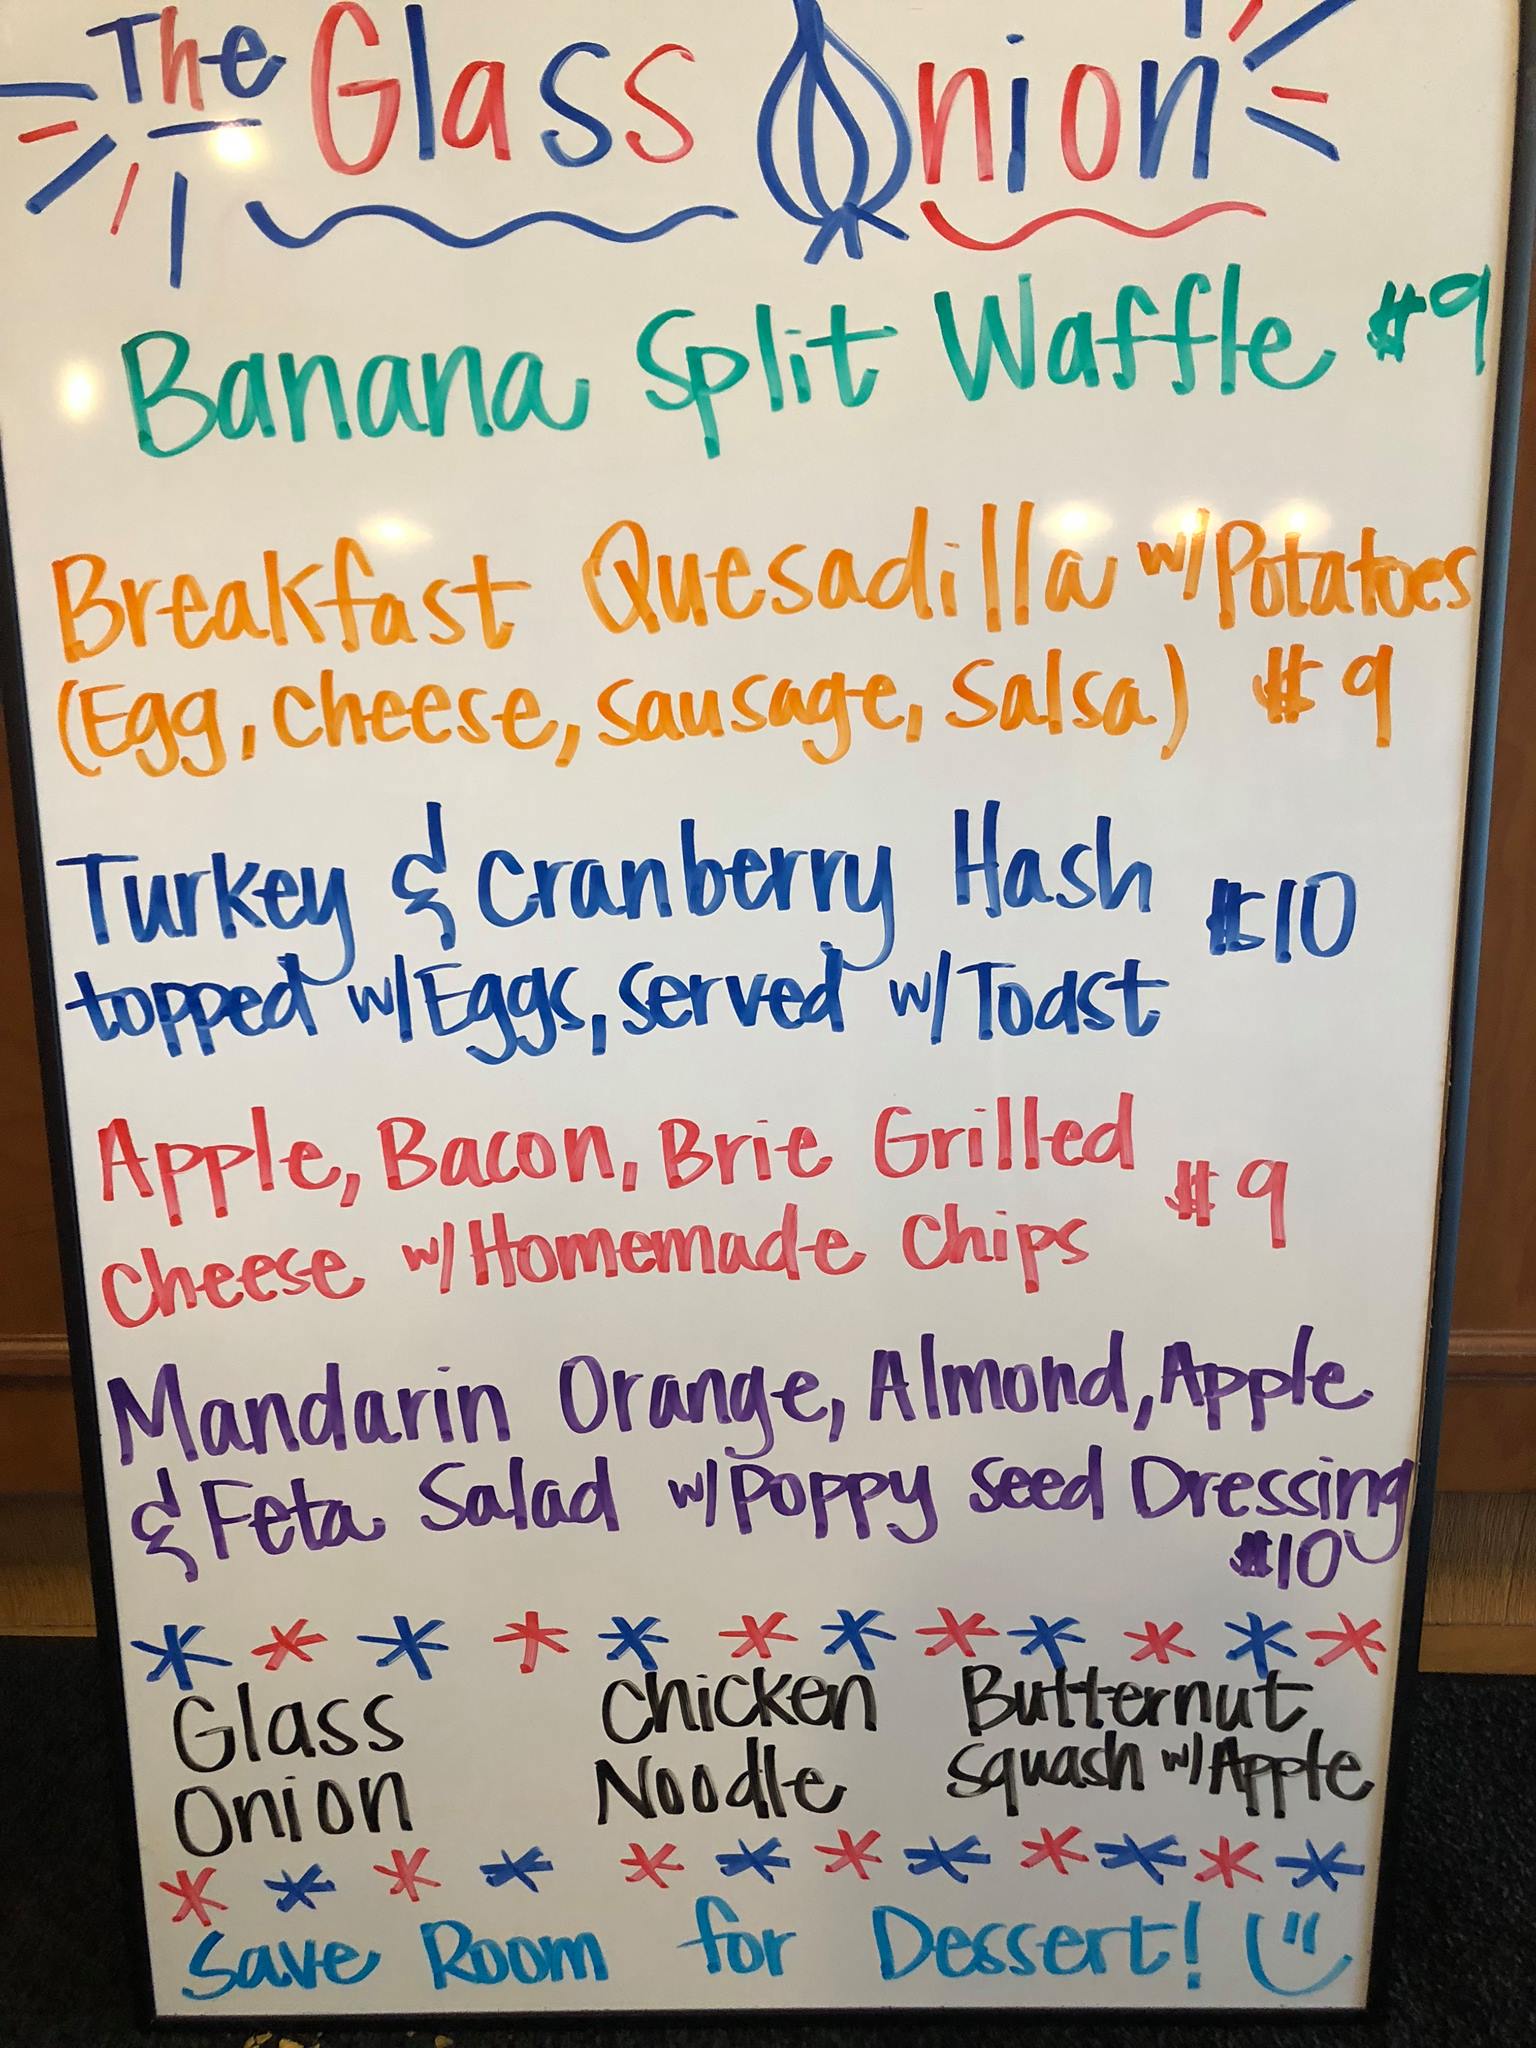 The Glass Onion
Banana Split Waffle $9
Breakfast Quesadilla w/Potatoes
(Egg, cheese, sausage, salsa) $9
Turkey & Cranberry Hash $10
topped w/Eggs, served w/Toast
Apple, Bacon, Brie Grilled $9
Cheese w/Homemade Chips
Mandarin Orange, Almond, Apple
& Feta Salad w/Poppy Seed Dressing
$10
Glass Chicken Butternut
Onion Noodle Squash w/Apple
Save Room for Dessert!